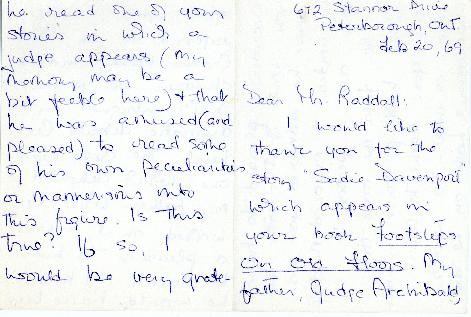 672 Stannor Drive
Peterborough, Ont.
Feb 20, 69
Dear Mr. Raddall:
I would like to
thank you for the
story "Sadie Davenport"
which appears in
your book Footsteps
On Old Floors. My
father, Judge Archibald,
he read one of your
stories in which a
judge appears (my
memory may be a
bit feeble here) & that
he was amused (and
pleased) to read some
of his own peculiarities
or mannerisms into
this figure. Is this
true? If so, I
would be very grate-